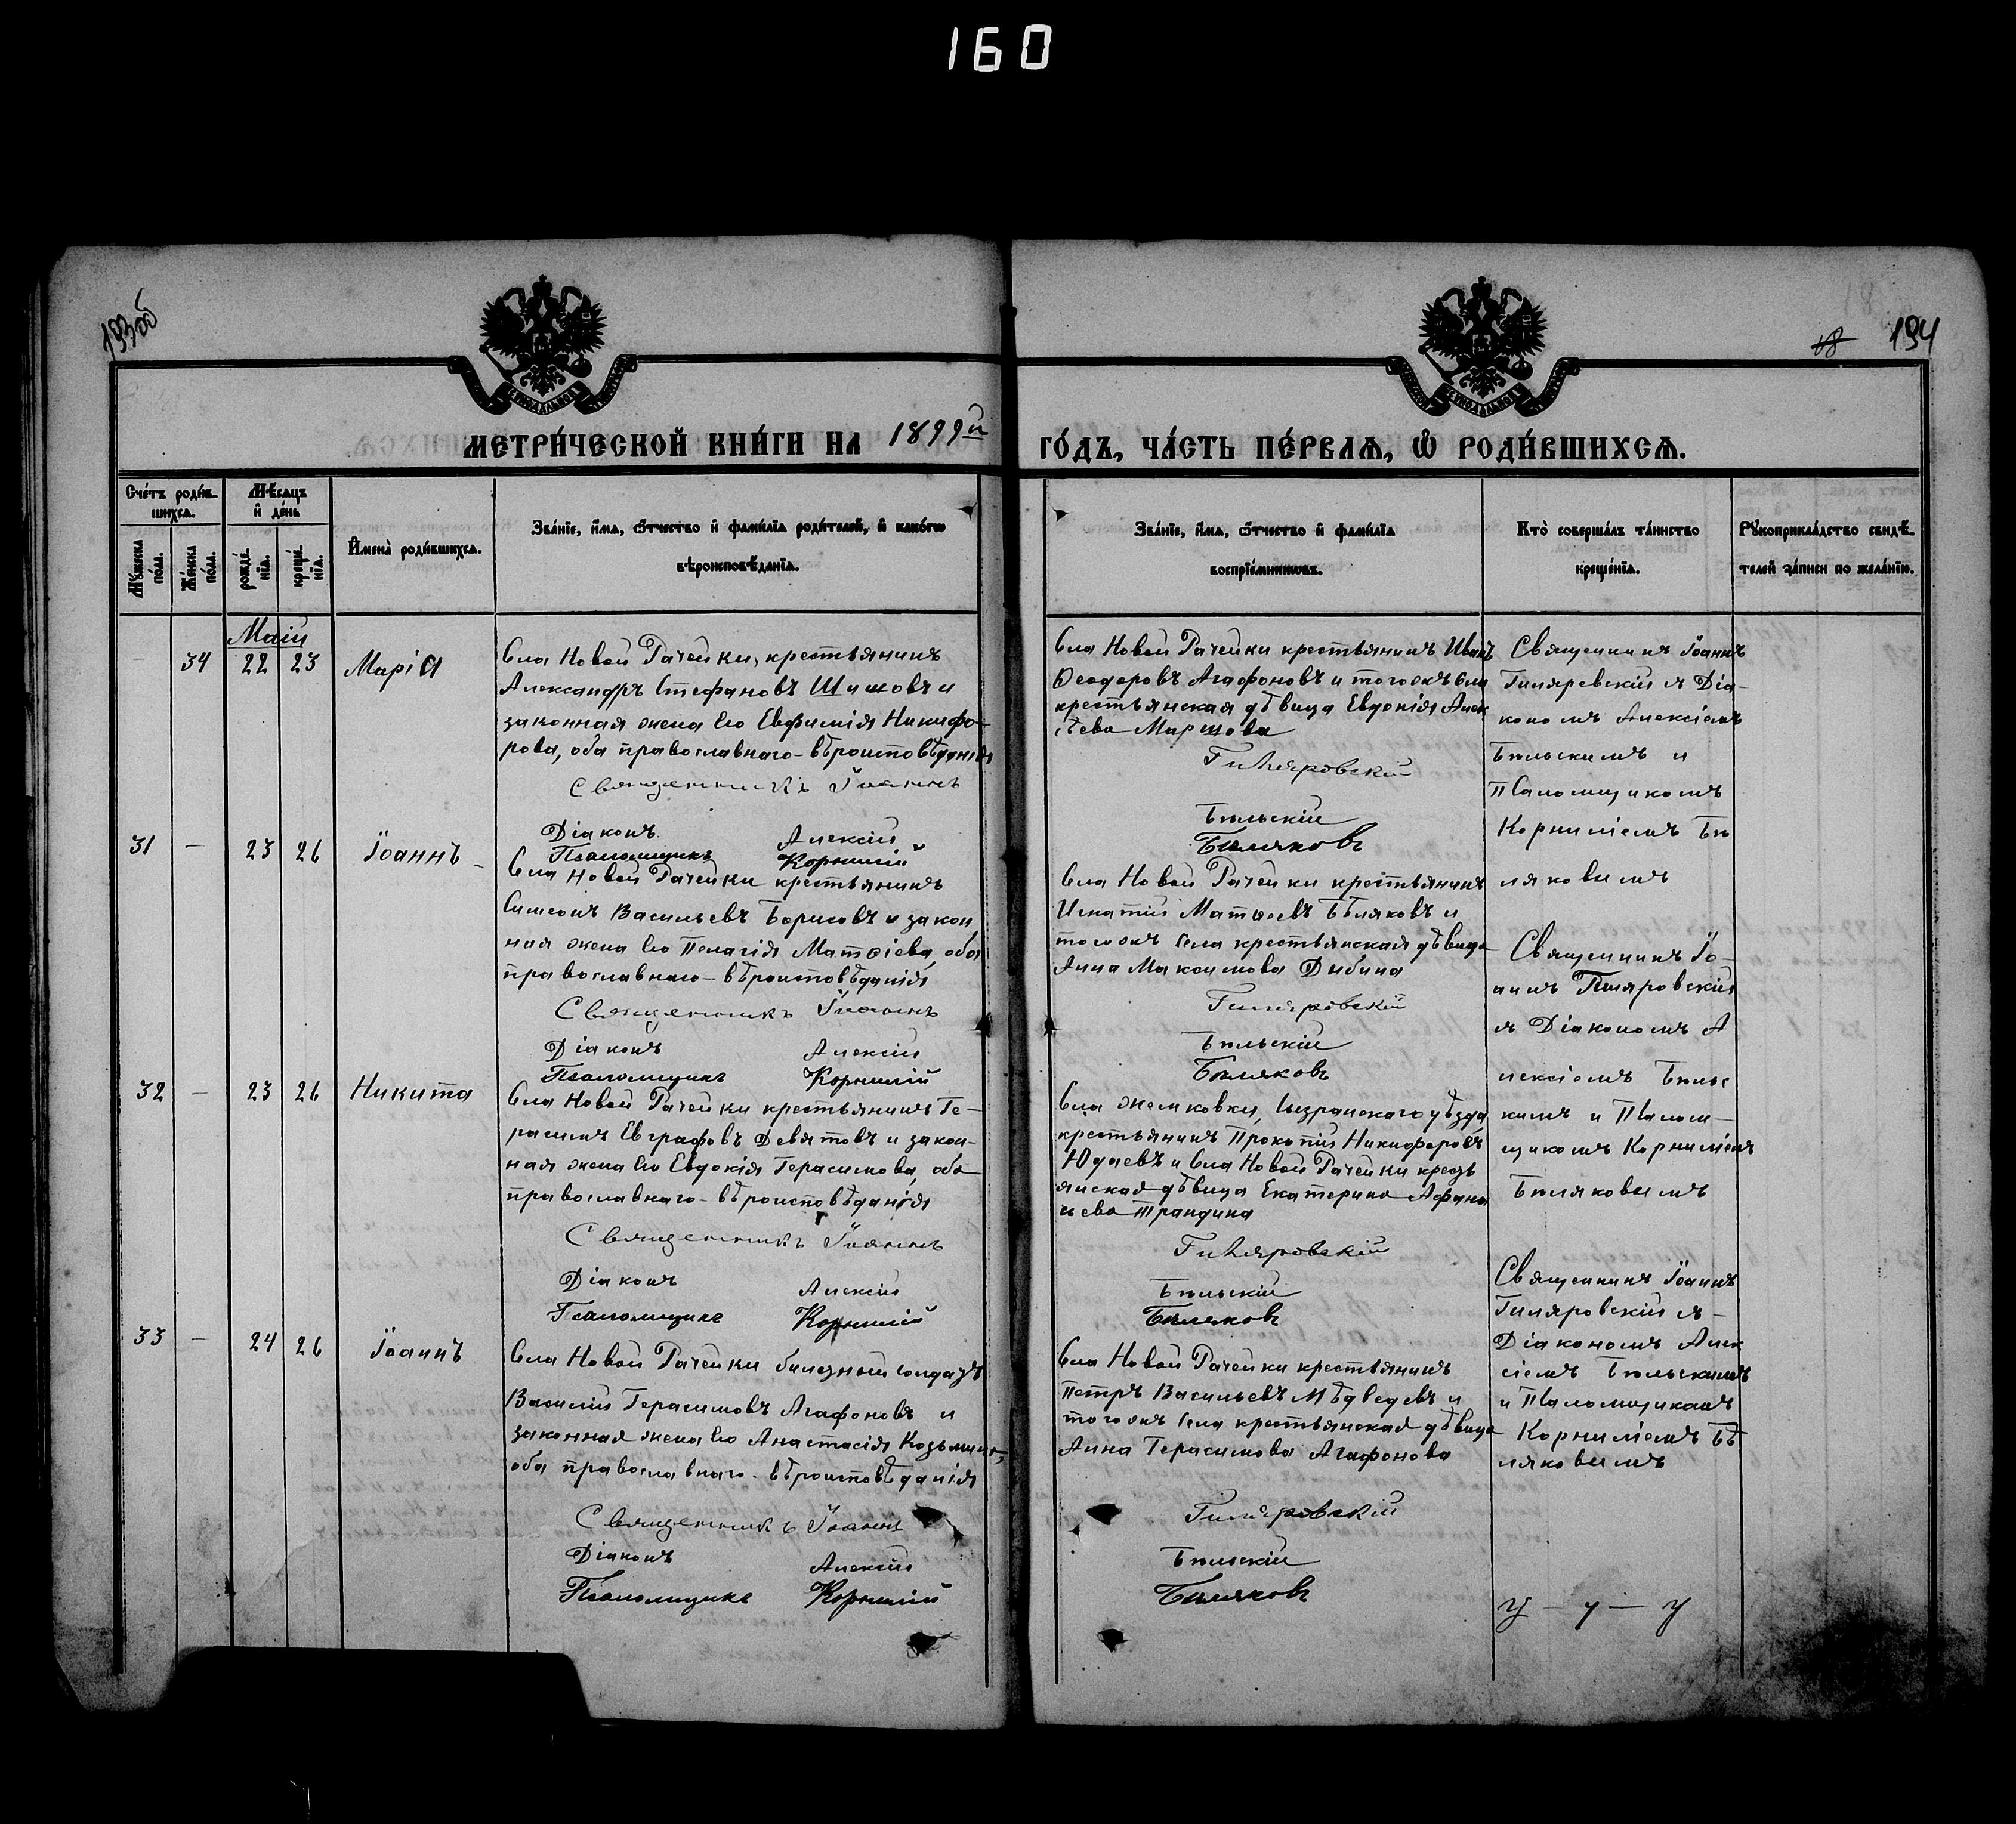 160
193об
18 194
МЕТРИ́ЧЕСКОЙ КНИ́ГИ НА 1899й
ГО́ДЪ, ЧА́СТЬ ПЕ́РВАѦ, Ѽ РОДИ́ВШИХСѦ.
Сче́тъ роди́в-
шихсѧ.
Мѣсѧцъ
и҆ де́нь
Мꙋ́жеска
по́ла.
Же́нска
по́ла.
рожде́-
нїѧ.
креще́-
нїѧ.
И҆мена̀ роди́вшихсѧ.
Зва́нїе, и҆́мѧ, ѻ҆́тчество и҆ фами́лїѧ роди́телей, и҆ како́гѡ
вѣроисповѣ́данїѧ.
Зва́нїе, и҆́мѧ, ѻ҆́тчество и҆ фами́лїѧ
воспрїе́мникѡвъ.
Кто̀ соверша́лъ та́инство
креще́нїѧ.
Рꙋкоприкла́дство свидѣ́-
телей за́писи по жела́нїю.
Маій
34 22 23 Марія
Села Новой Рачейки, крестьянинъ
Александръ Стефановъ Шишовъ и
законная жена его Евфимія Никифо-
рова, оба православнаго-вѣроисповѣданія
Священникъ Іоаннъ
Діаконъ Алексій
Псаломщикъ Корнилій
Села Новой Рачейки крестьянинъ Иванъ
Ѳеодоровъ Агафоновъ и тогожъ села
крестьянская дѣвица Евдокія Алек
сѣева Маршова
Гиляровскій
Бѣльскій
Бѣляковъ
Священникъ Іоаннъ
Гиляревскій съ Діа-
кономъ Алексіемъ
Бѣльскимъ и
Псаломщикомъ
Корниліемъ Бѣ
ляковымъ
31 — 23 26 Іоаннъ
Села Новой Рачейки крестьянинъ
Симеонъ Васильевъ Борисовъ и закон
ная жена его Пелагія Матѳіева, оба
православнаго-вѣроисповѣданія
Священникъ Іоаннъ
Діаконъ Алексій
Псаломщикъ Корнилій
Села Новой Рачейки крестьянинъ
Игнатій Матѳеевъ Бѣляковъ и
тогожъ села крестьянская дѣвица
Анна Максимова Дыбина
Гиляровскій
Бѣльскій
Бѣляковъ
Священникъ Іо-
аннъ Гиляровскій
съ Діакономъ А
лексіемъ Бѣльс
кимъ и Псалом-
щикомъ Корниліемъ
Бѣляковымъ
32 — 23 26 Никита
Села Новой Рачейки крестьянинъ Ге-
расимъ Евграфовъ Девятовъ и закон-
ная жена его Евдокія Герасимова, оба
православнаго-вѣроисповѣданія
Священникъ Іоаннъ
Діаконъ Алексій
Псаломщикъ Корнилій
Села Жемковки, Сызранскаго уѣзда,
крестьянинъ Прокопій Никифоровъ
Юдаевъ и села Новой Рачейки кресть
янская дѣвица Екатерина Афана
сьева Трандина
Гиляровскій
Бѣльскій
Бѣляковъ
Священникъ Іоаннъ
Гиляровскій съ
Діакономъ Алек
сіемъ Бѣльскимъ
и Псаломщикомъ
Корниліемъ Бѣ
ляковымъ
33 — 24 26 Іоаннъ
Села Новой Рачейки билетный солдатъ
Василій Герасимовъ Агафоновъ и
законная жена его Анастасія Козьмина,
оба православнаго-вѣроисповѣданія
Священникъ Іоаннъ
Діаконъ Алексій
Псаломщикъ Корнилій
Села Новой Рачейки крестьянинъ
Петръ Васильевъ Мѣдведевъ и
тогожъ села крестьянская дѣвица
Анна Герасимова Агафонова
Гиляровскій
Бѣльскій
Бѣляковъ